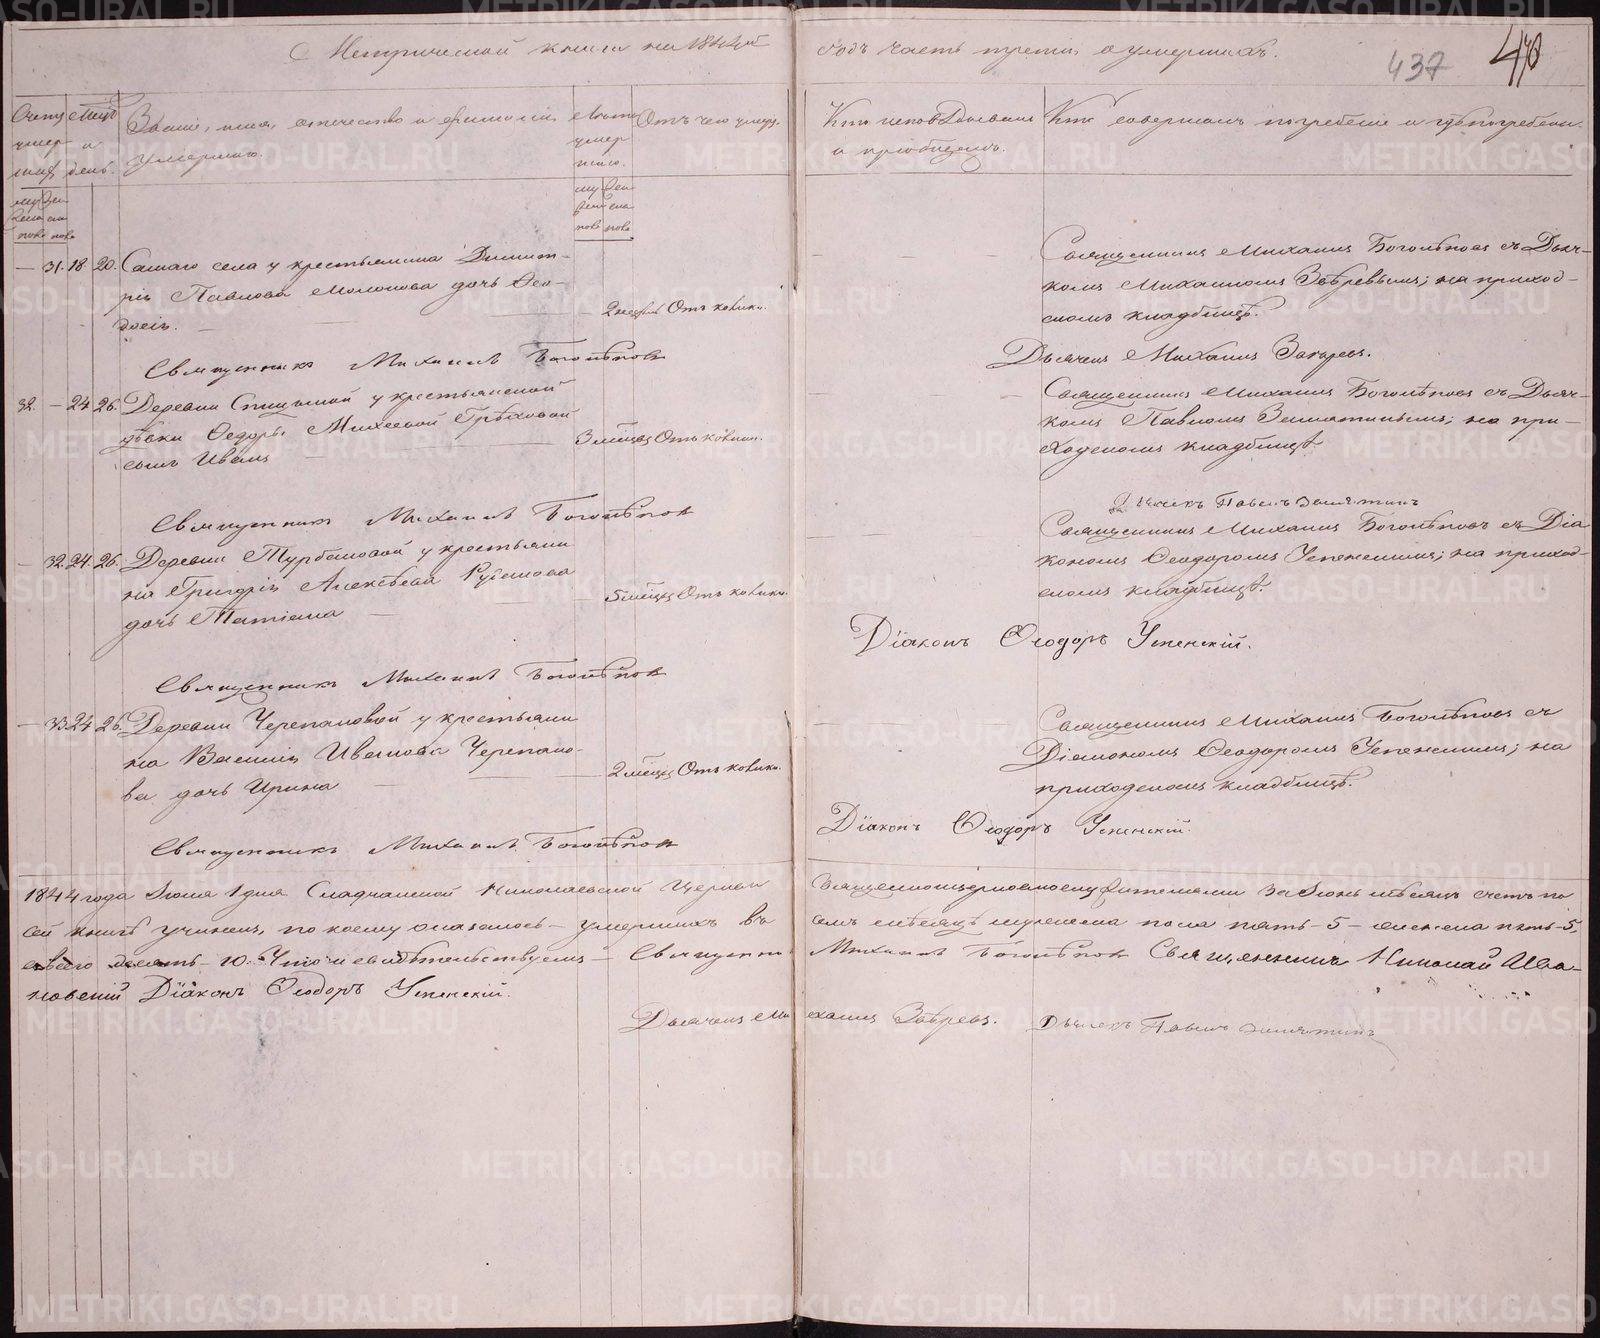 Метрической книги на 1844й
годъ часть третія, о умершихъ.
437
470
Счетъ умершихъ
Мѣсяцъ и день.
Званіе, имя, отечество и фамилія умершаго.
Лѣта умершаго.
Отъ чего умеръ.
Кто исповѣдывалъ и пріобщалъ.
Кто совершалъ погребеніе и гдѣ погребены.
— 31. 18. 20. Самаго села у крестьянина Димит-
рія Павлова Молокова дочь Ѳео-
досія.
2 недѣль Отъ колики.
Священникъ Михаилъ Боголѣповъ съ Дьяч-
комъ Михаиломъ Зыревымъ; на приход-
скомъ кладбищѣ.
Священникъ Михаилъ Боголѣповъ
Дьячекъ Михаилъ Зыревъ.
32. — 24 26. Деревни Спициной у крестьянской
дѣвки Ѳедоры Михеевой Грѣховой
сынъ Иванъ
3 мѣсяц. Отъ колики.
Священникъ Михаилъ Боголѣповъ съ Дьяч-
комъ Павломъ Замятинымъ; на при-
ходскомъ кладбищѣ
Священникъ Михаилъ Боголѣповъ
Дьячекъ Павелъ Замятинъ
— 32. 24. 26. Деревни Турбановой у крестьяни
на Григорія Алексѣева
дочь Татіана
5 мѣсяц. Отъ колики.
Священникъ Михаилъ Боголѣповъ съ Діа
кономъ Ѳеодоромъ Успенскимъ; на приход-
скомъ кладбищѣ.
Священникъ Михаилъ Боголѣповъ
Діаконъ Ѳеодоръ Успенскій.
— 33 24 26. Деревни Черепановой у крестьяни
на Василія Иванова Черепано-
ва дочь Ирина
2 мѣсяц. Отъ колики.
Священникъ Михаилъ Боголѣповъ съ
Діакономъ Ѳеодоромъ Успенскимъ; на
приходскомъ кладбищѣ.
Священникъ Михаилъ Боголѣповъ
Діаконъ Ѳеодоръ Успенскій.
1844 года Іюля 1 дня Сладчанской Николаевской Церкви Священноцерковнослужителями за Іюнь мѣсяцъ счетъ по
сей книгѣ учиненъ, по коему оказалось умершихъ въ семъ мѣсяцѣ мужеска пола пять — 5 — женска пять — 5,
а всего десять — 10. Что и свидѣтельствуемъ — Священникъ Михаилъ Боголѣповъ Священникъ Николай Ива-
новскій Діаконъ Ѳеодоръ Успенскій.
Дьячекъ Михаилъ Зыревъ. Дьячекъ Павелъ Замятинъ
METRIKI.GASO-URAL.RU